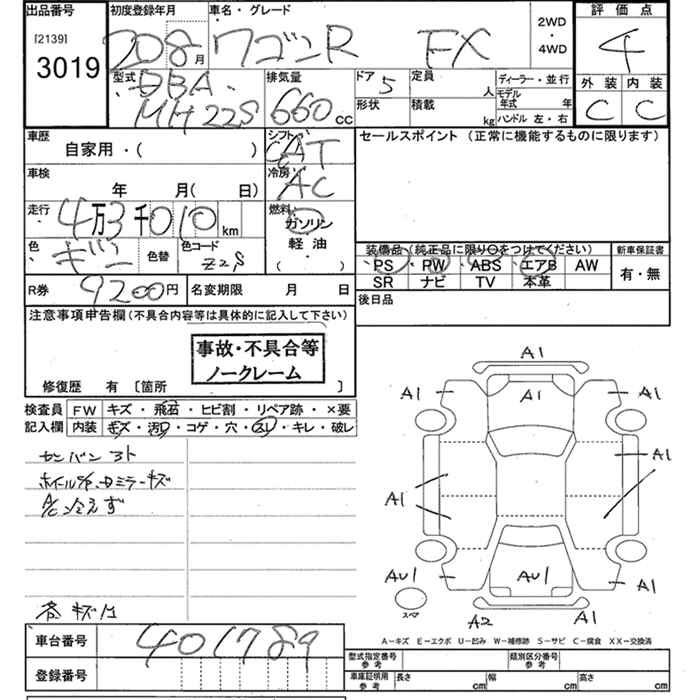 出品番号 初度登録年月 車名・グレード 2WD・4WD 評価点
[2139]
3019
20 8月 ワゴンR FX 4
型式 DBA- MH22S
排気量 660 cc
ドア 5 定員 人 ディーラー・並行
形状 積載 kg モデル年式 年
ハンドル 左・右
外装 内装
C C
車歴 自家用・( )
シフト CAT
セールスポイント (正常に機能するものに限ります)
車検 年 月( 日)
冷房 AC
走行 4万3千010km
燃料 ガソリン
軽油
( )
色 ギン 色替 色コード Z2S
装備品 (純正品に限り○をつけてください) 新車保証書
PS PW ABS エアB AW 有・無
SR ナビ TV 本革
R券 9200円 名変期限 月 日
後日品
注意事項申告欄(不具合内容等は具体的に記入して下さい)
事故・不具合等
ノークレーム
修復歴 有 〔箇所 〕
検査員 FW キズ・飛石・ヒビ割・リペア跡・×要
記入欄 内装 キズ・汚レ・コゲ・穴・スレ・キレ・破レ
A1
A1 A1
A1
A1 A1
AU1 AU1 A1
A2 A1
スペア
A/C冷えず
A-キズ E-エクボ U-凹み W-補修跡 S-サビ C-腐食 XX-交換済
車台番号 401789
登録番号
型式指定番号 参考 類別区分番号 参考
車庫証明用 参考 長さ cm 幅 cm 高さ cm